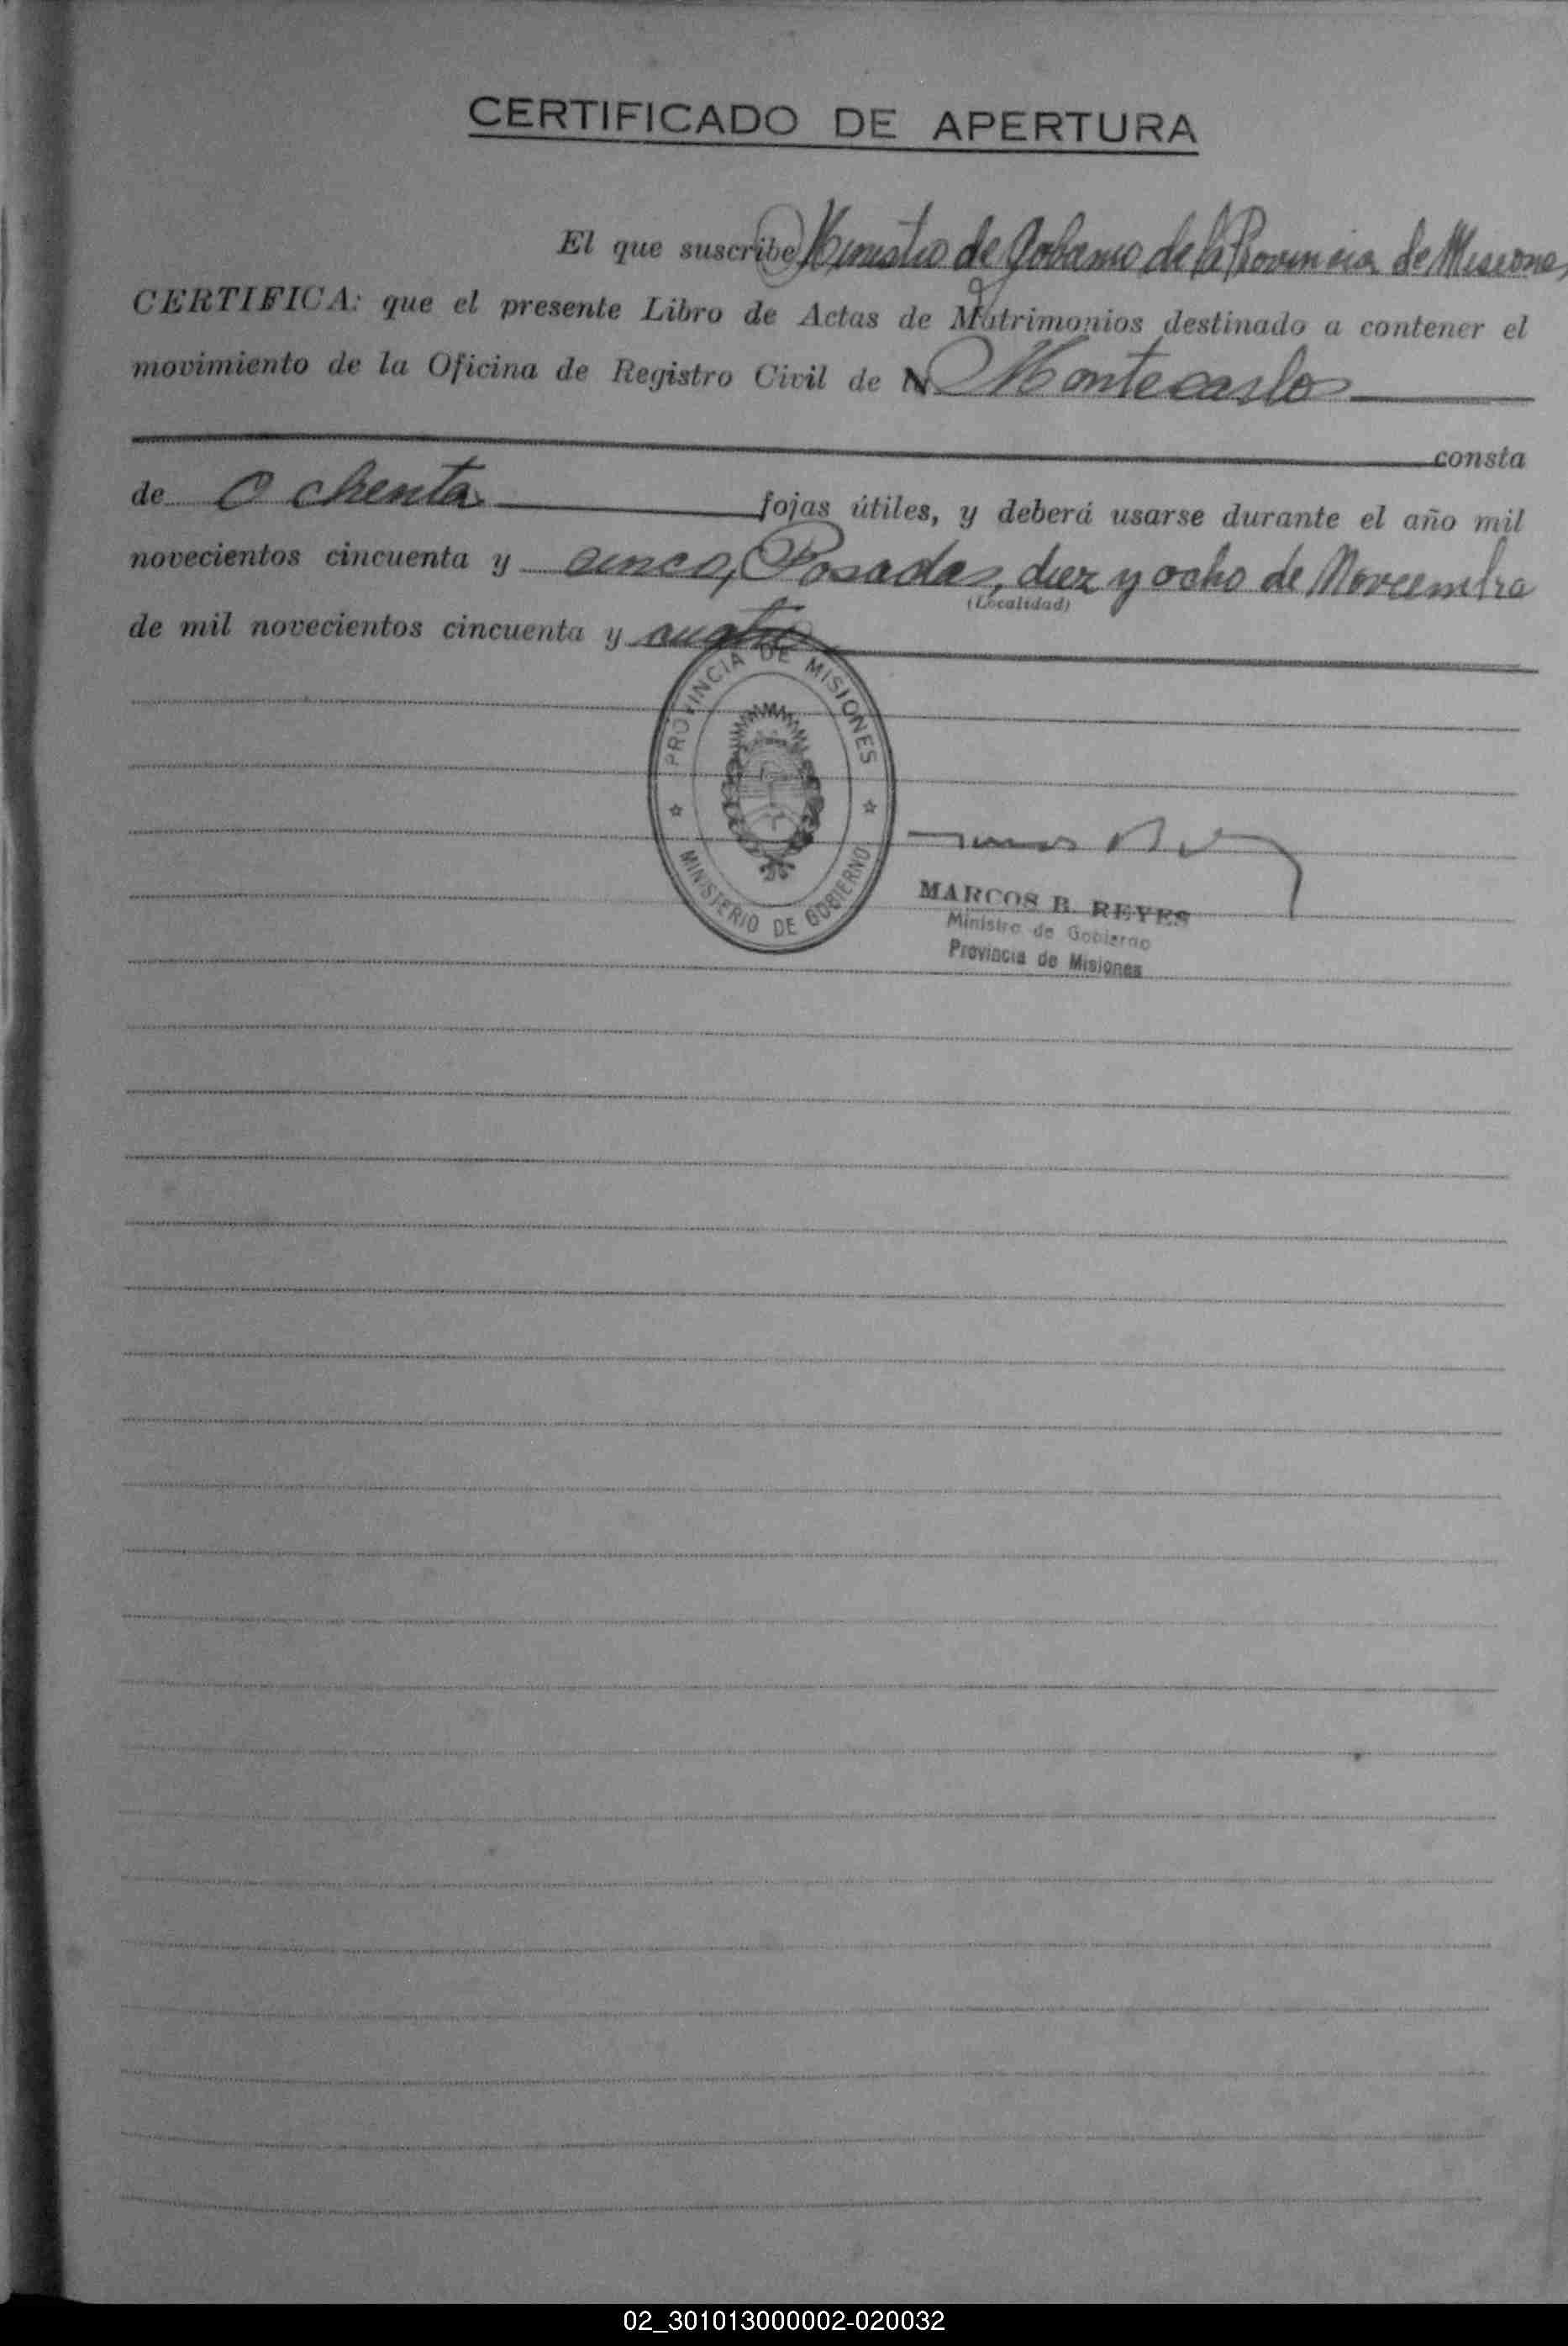 CERTIFICADO DE APERTURA
El que suscribe Ministro de Gobierno de la Provincia de Misiones,
CERTIFICA: que el presente Libro de Actas de Matrimonios destinado a contener el
movimiento de la Oficina de Registro Civil de Montecarlo
consta
de Ochenta fojas útiles, y deberá usarse durante el año mil
novecientos cincuenta y cinco, Posadas, diez y ocho de Noviembre
(Localidad)
de mil novecientos cincuenta y cuatro
PROVINCIA DE MISIONES
MINISTERIO DE GOBIERNO
MARCOS B. REYES
Ministro de Gobierno
Provincia de Misiones
02_301013000002-020032